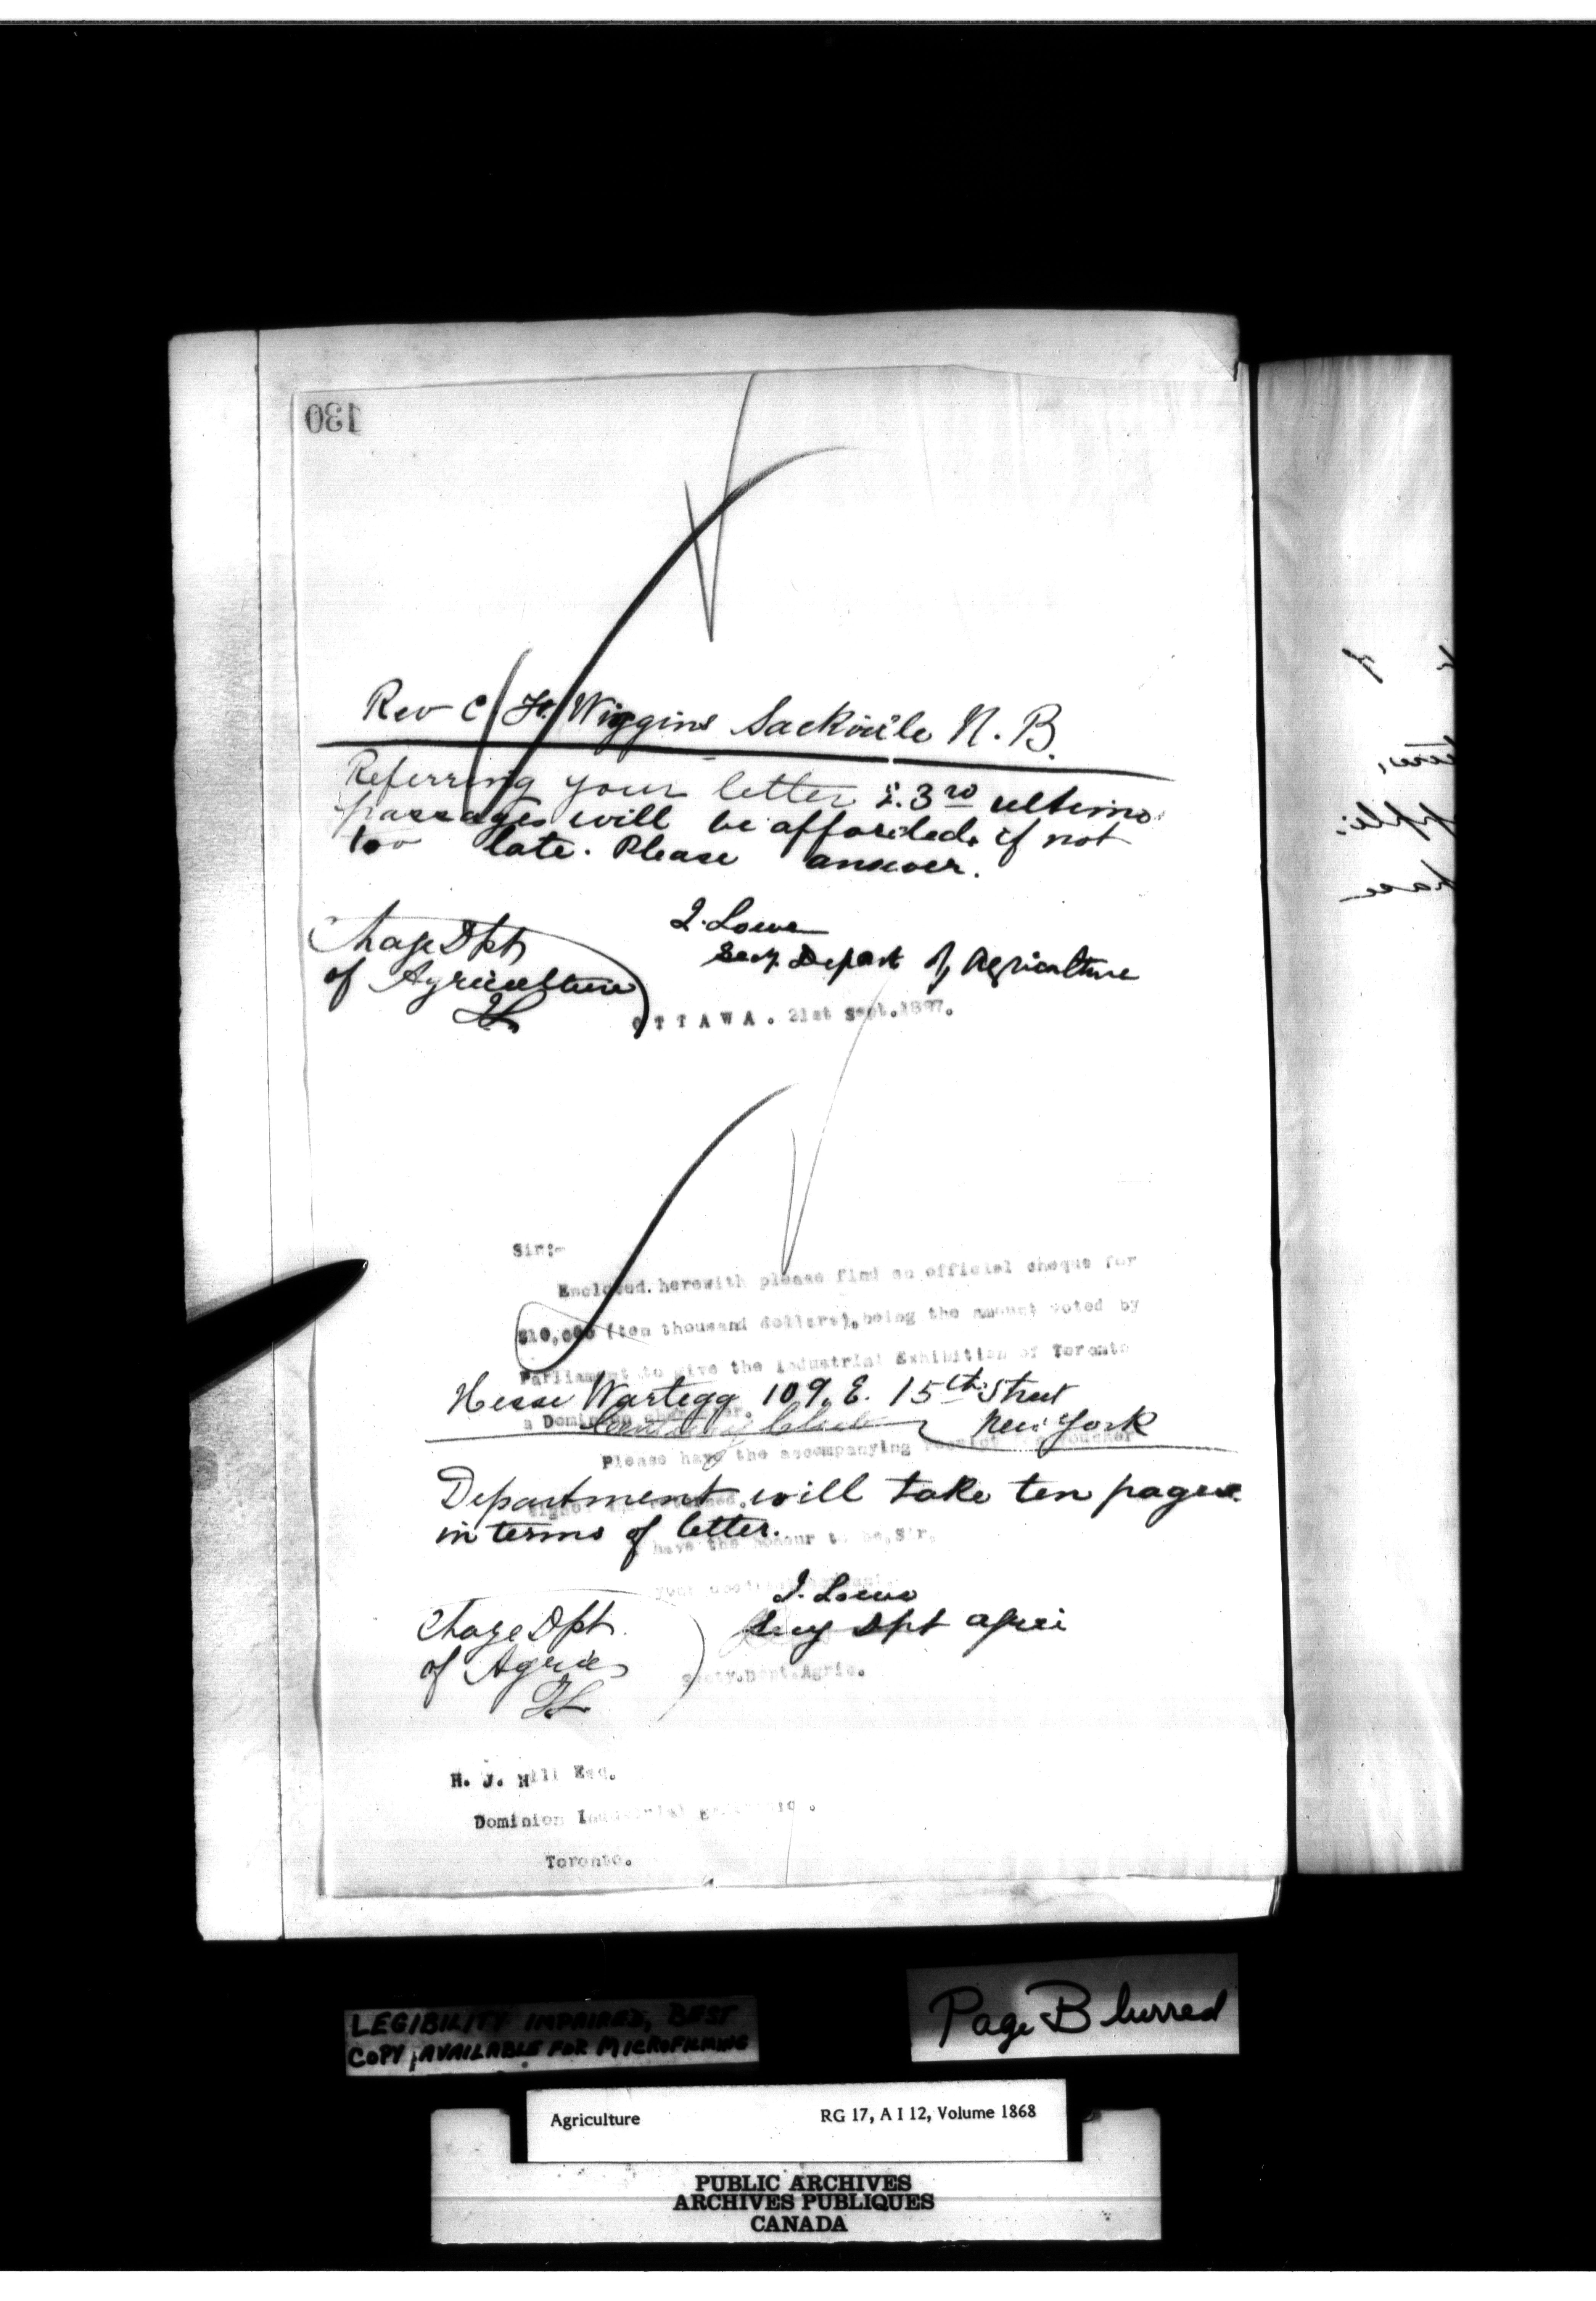 130
Rev C. H. Wiggins Sackville N. B.
Referring your letter 3rd ultimo
passages will be afforded, if not
too late. Please answer.
J. Lowe
Secy. Depart of Agriculture
Charge Dpt
of Agriculture
JL
OTTAWA. 21st Sept.1887.
Sir:-
Enclosed herewith please find an official cheque for
$10,000 (ten thousand dollars), being the amount voted by
Parliament to give the Industrial Exhibition of Toronto
Hesse Wartegg 109. E. 15th Street
a Dominion character.
New York
Please have the accompanying receipt voucher
Department will take ten pages
signed and returned.
in terms of letter.
have the honour to be, Sir,
your obedient servant
J. Lowe
Secy Dpt Agri
Charge Dpt.
of Agric
JL
Secty.Dept.Agric.
H. J. Hill Esq.
Dominion Industrial
Toronto.
LEGIBILITY IMPAIRED, BEST
COPY AVAILABLE FOR MICROFILMING
Page Blurred
Agriculture RG 17, A I 12, Volume 1868
PUBLIC ARCHIVES
ARCHIVES PUBLIQUES
CANADA